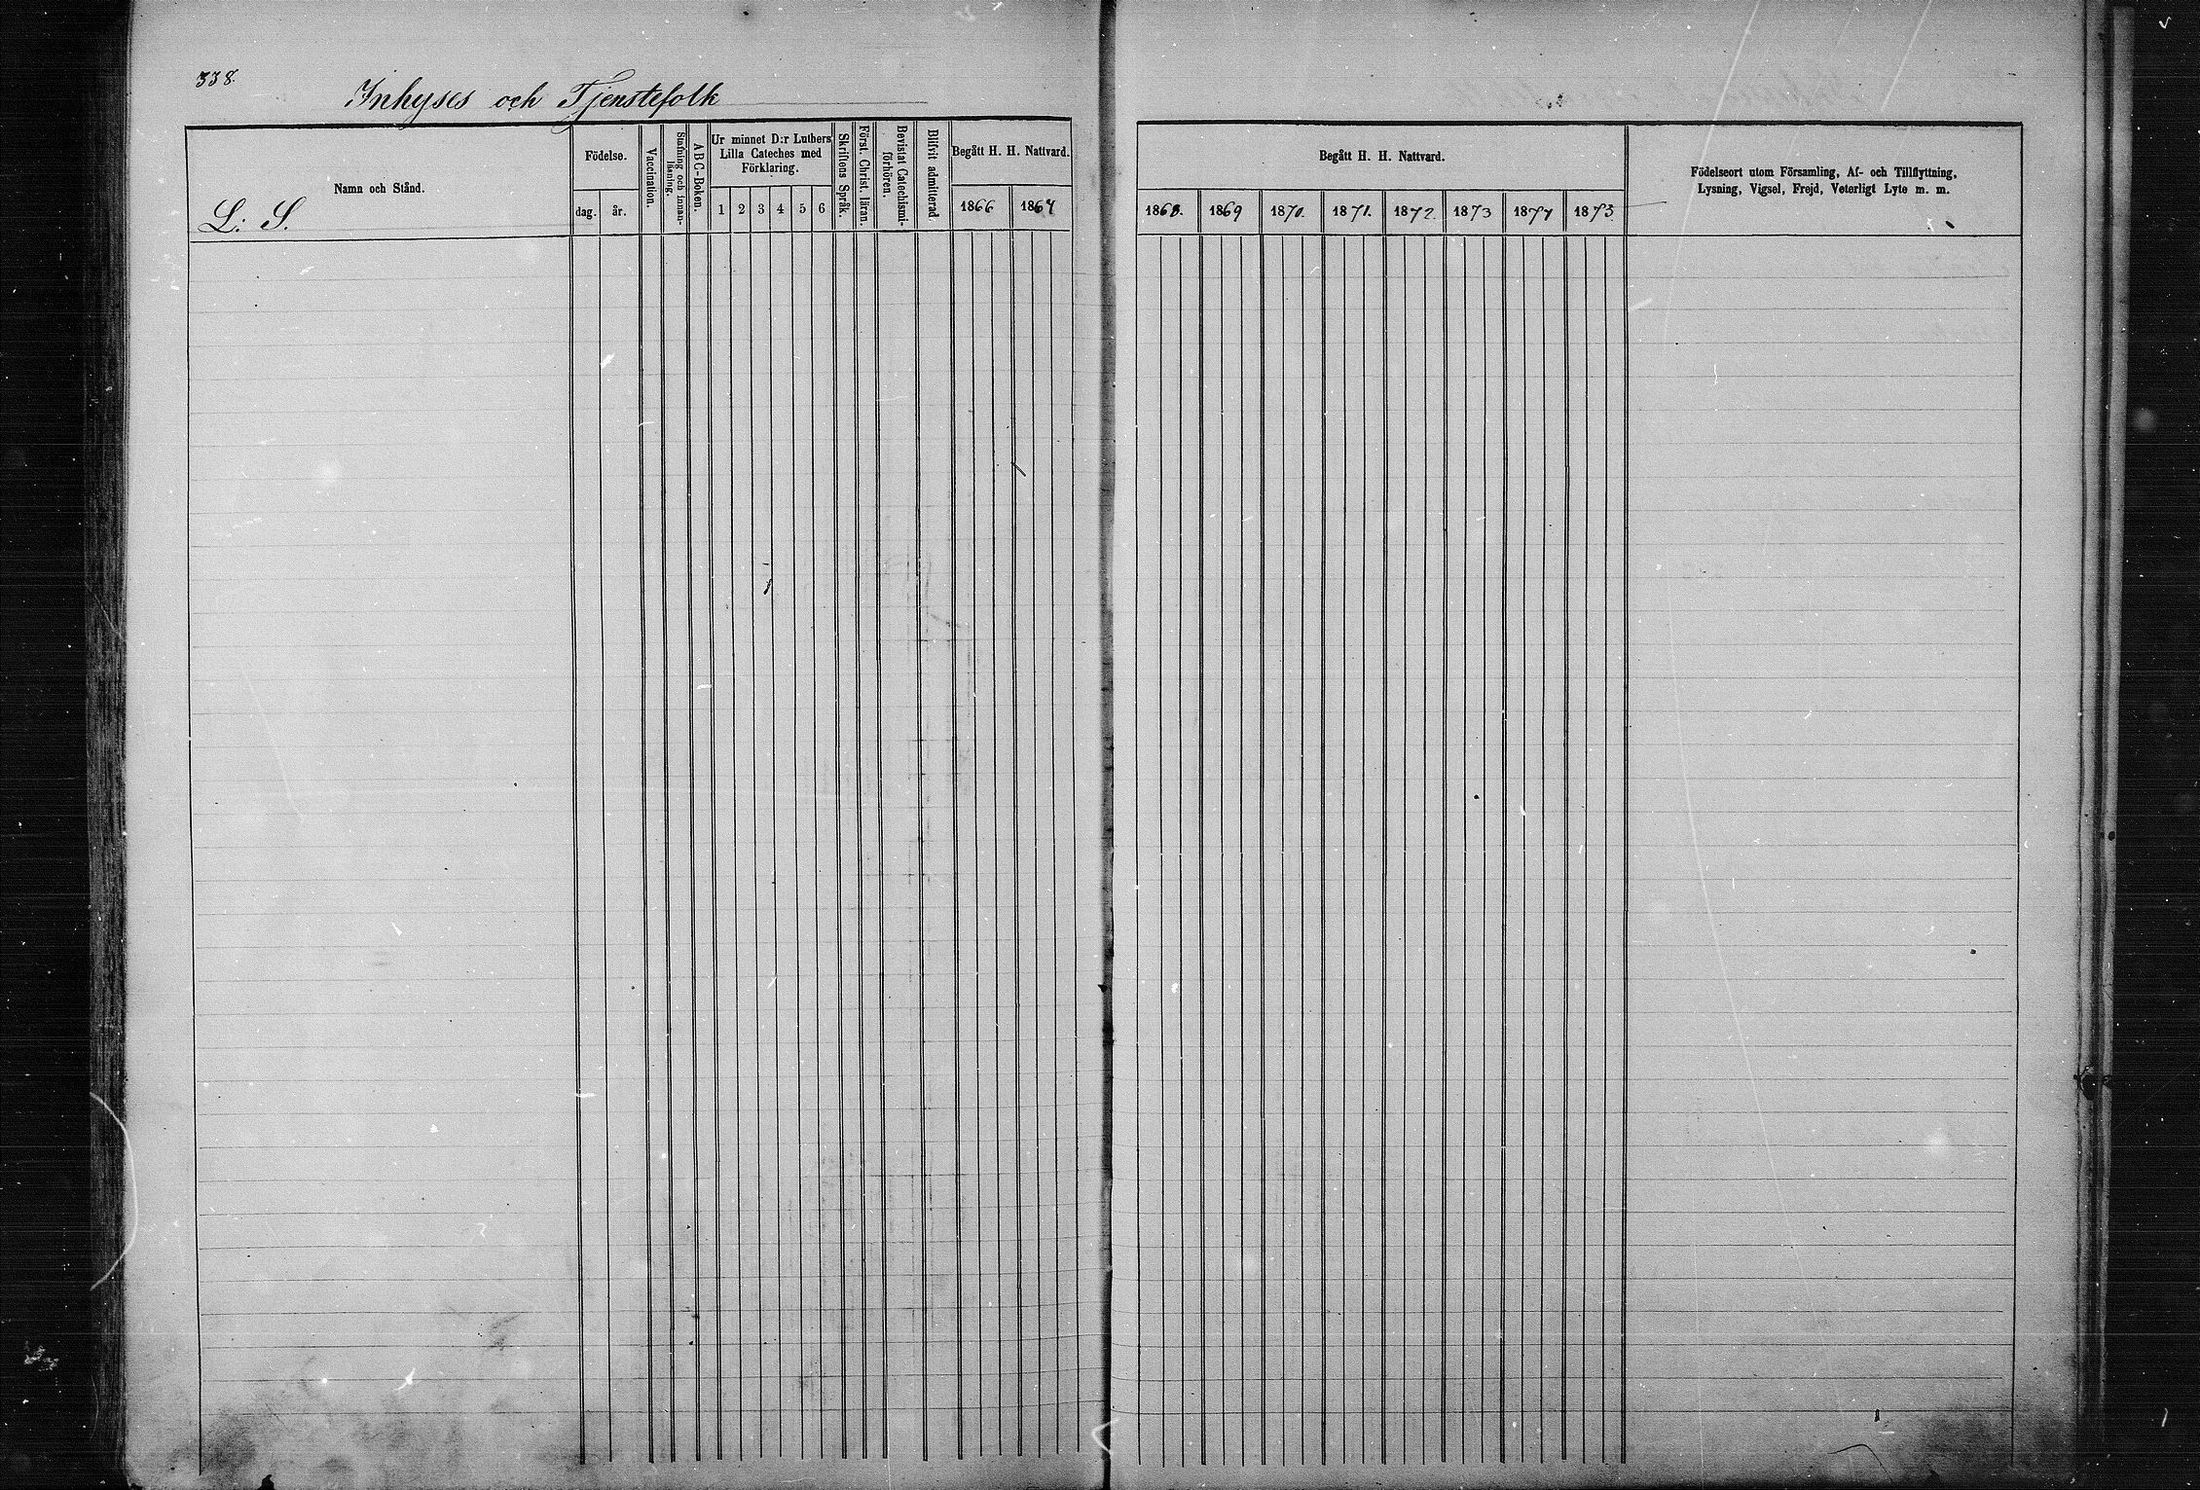 338.
Inhyses och Tjenstefolk
Namn och Stånd.
L: S.
Födelse.
dag. år.
Vaccination.
Stafning och innan-
läsning.
ABC-Boken.
Ur minnet D:r Luthers
Lilla Cateches med
Förklaring.
1 2 3 4 5 6
Skriftens Språk.
Först. Christ. läran.
Bevistat Catechismi-
förhören.
Blifvit admitterad
Begått H. H. Nattvard.
1866 1867
Begått H. H. Nattvard.
1868. 1869 1870. 1871. 1872. 1873 1874 1873
Födelseort utom Församling, Af- och Tillflyttning,
Lysning, Vigsel, Frejd, Veterligt Lyte m. m.